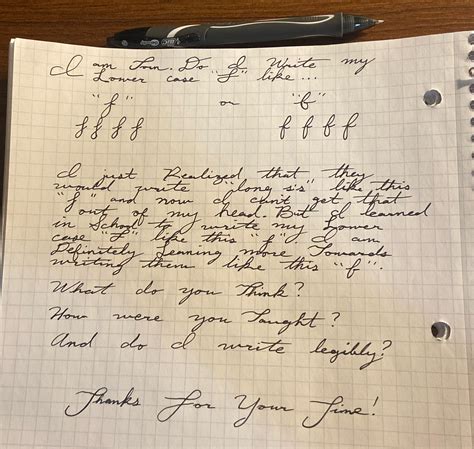 I am Tom. Do I Write my
Lower case "F" like...
"f" or "f"
f f f f f f f f
I just Realized that they
would write "long s's" like this
"f" and now I can't get that
out of my head. But I learned
in School to write my Lower
case "F" like this "f". I am
Definitely Leaning more Towards
writing them like this "f".
What do you Think?
How were you Taught?
And do I write legibly?
Thanks For Your Time!